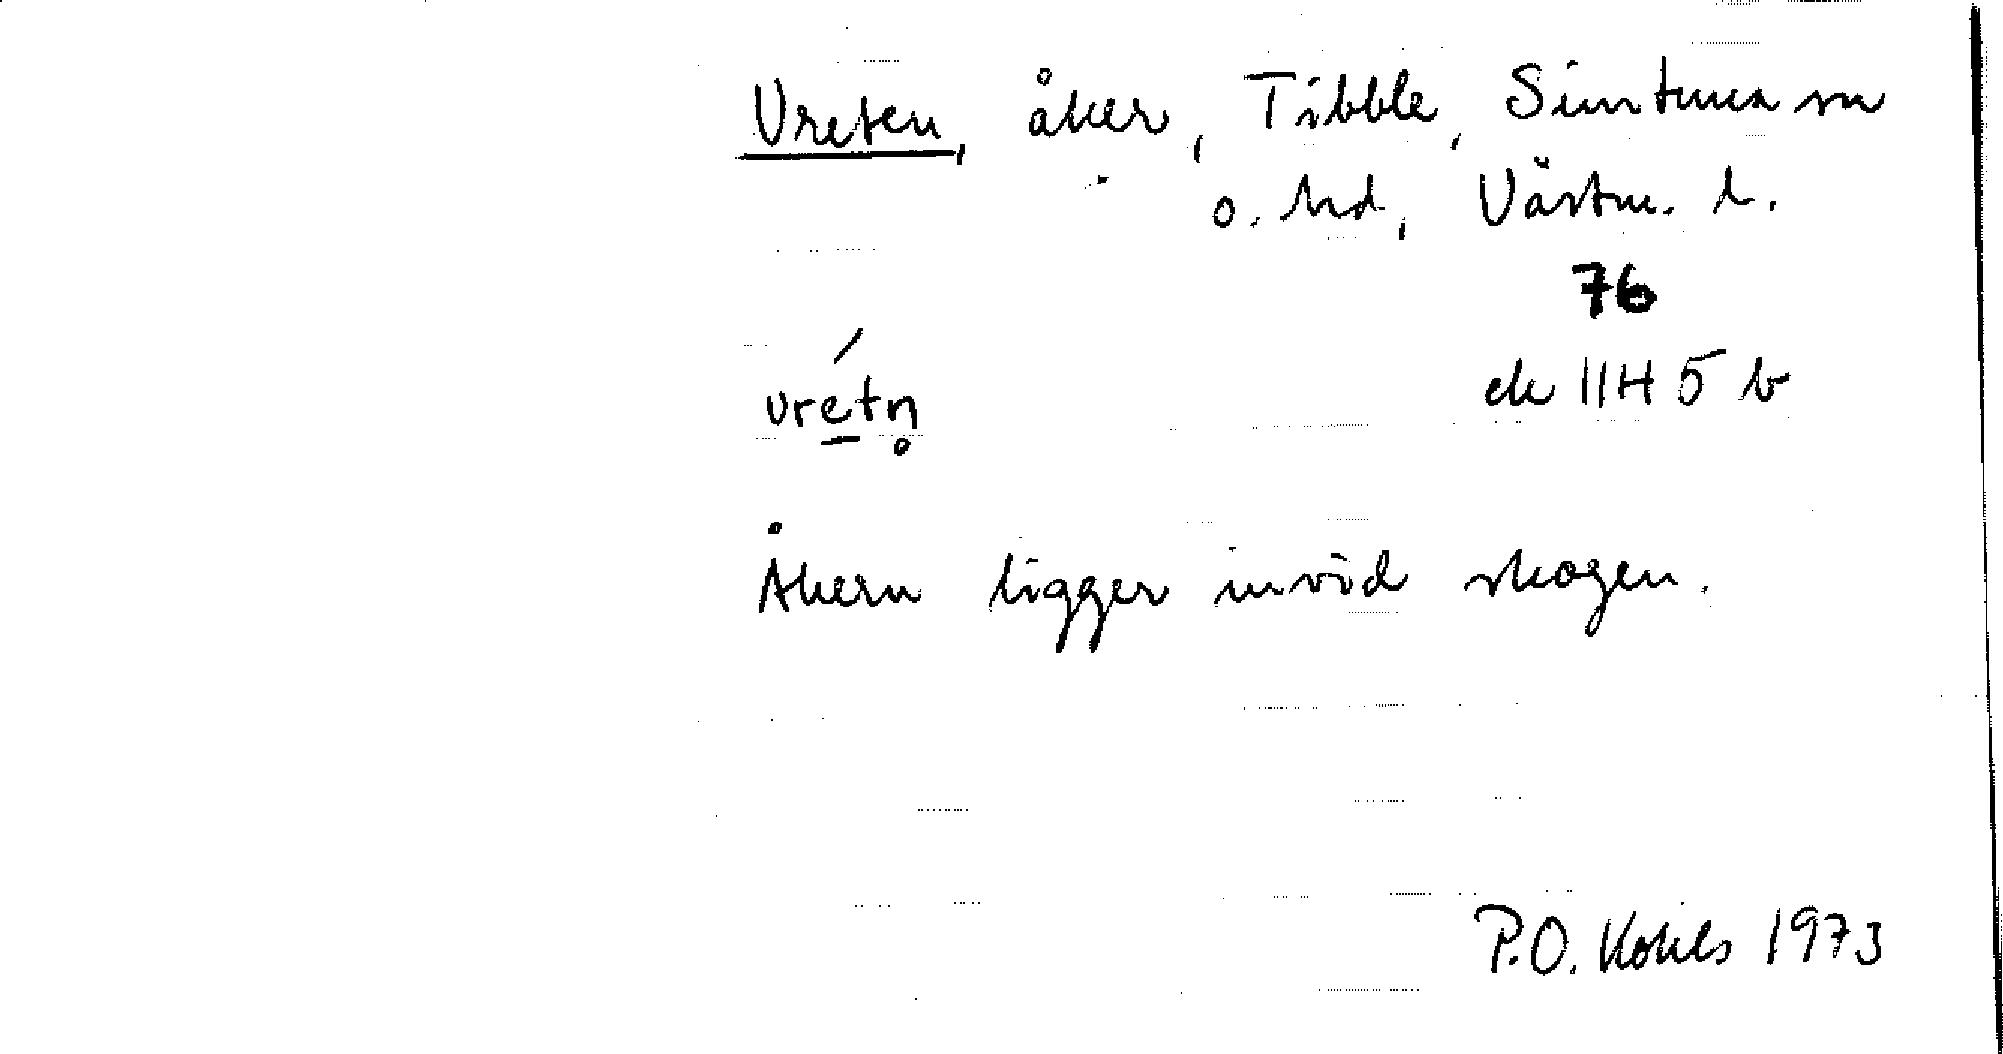 Vreten, åker, Tibble, Simtuna sn
o. hd, Västm. l.
76
ek 11H 5 b
vrétn̥
Åkern ligger invid skogen.
P.O. Kohls 1973